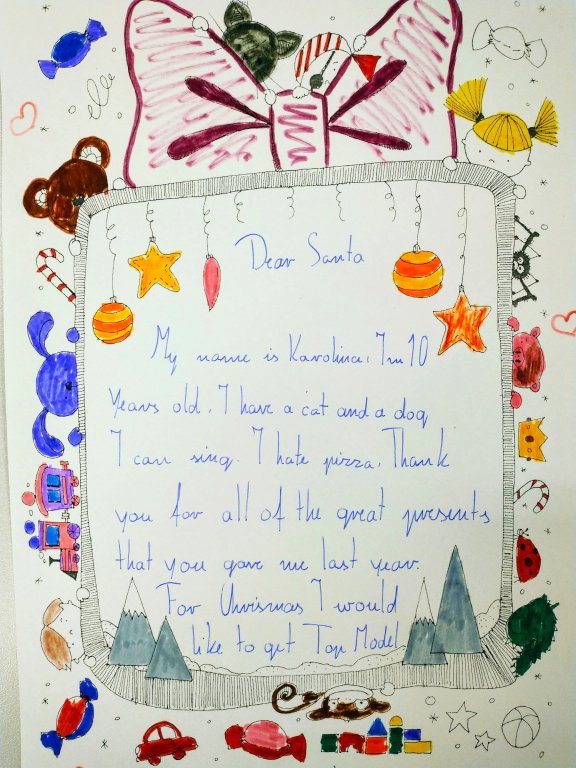 Dear Santa
My name is Karolina. I'm 10
years old. I have a cat and a dog
I can sing. I hate pizza. Thank
you for all of the great presents
that you gave me last year.
For Chrismas I would
like to get Top Model